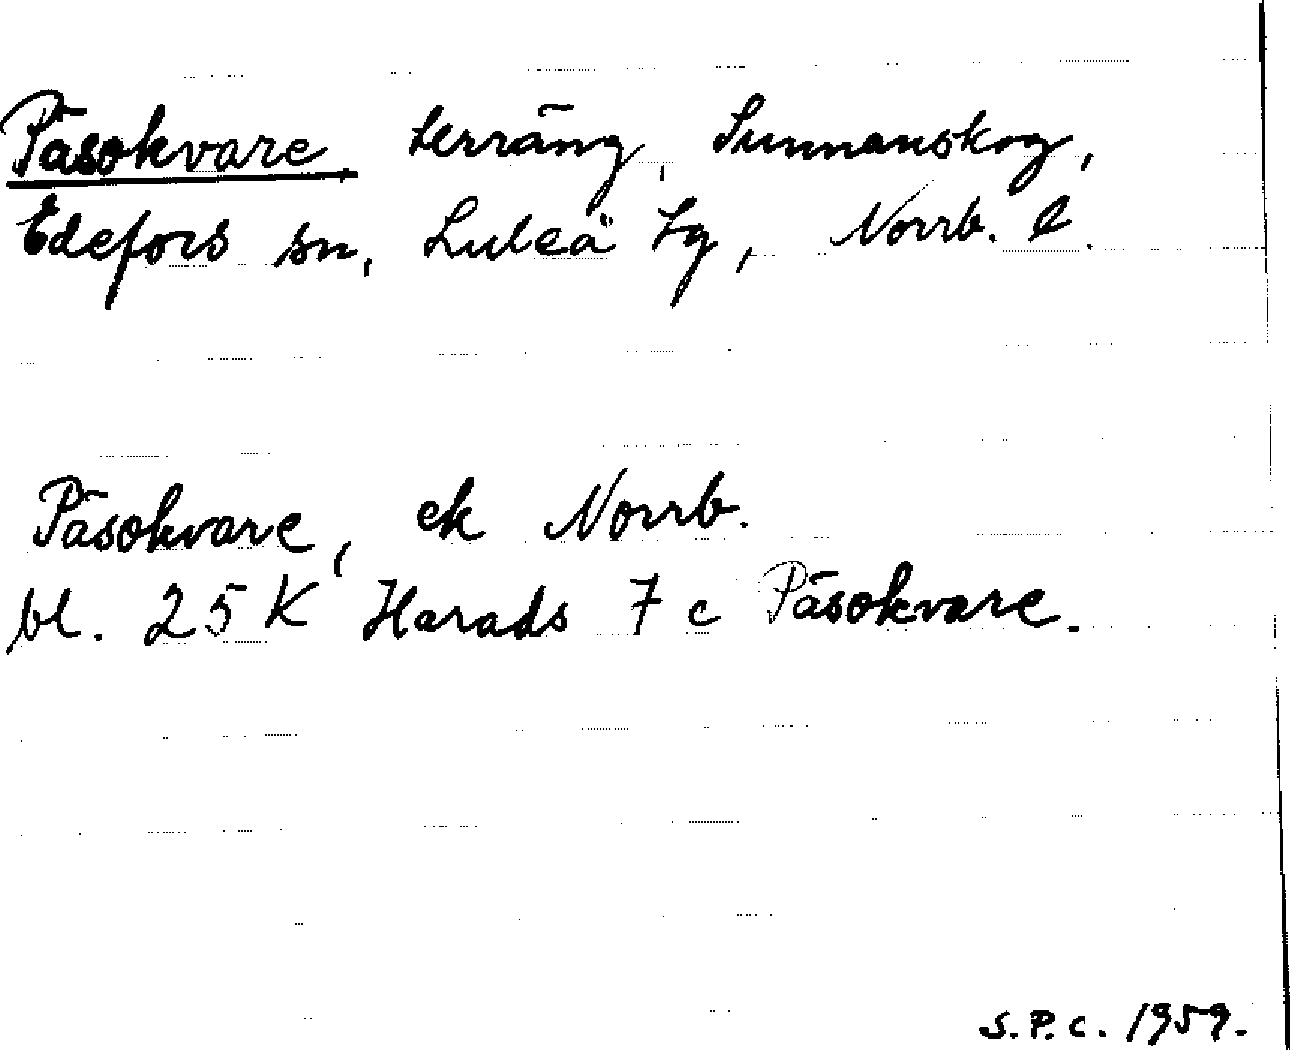 Päsokvare, terräng, Sunnanskog,
Edefors sn, Luleå tg, Norrb. l.
Päsokvare, ek Norrb.
bl. 25 K Harads 7 c Päsokvare.
S.P.C. 1959.